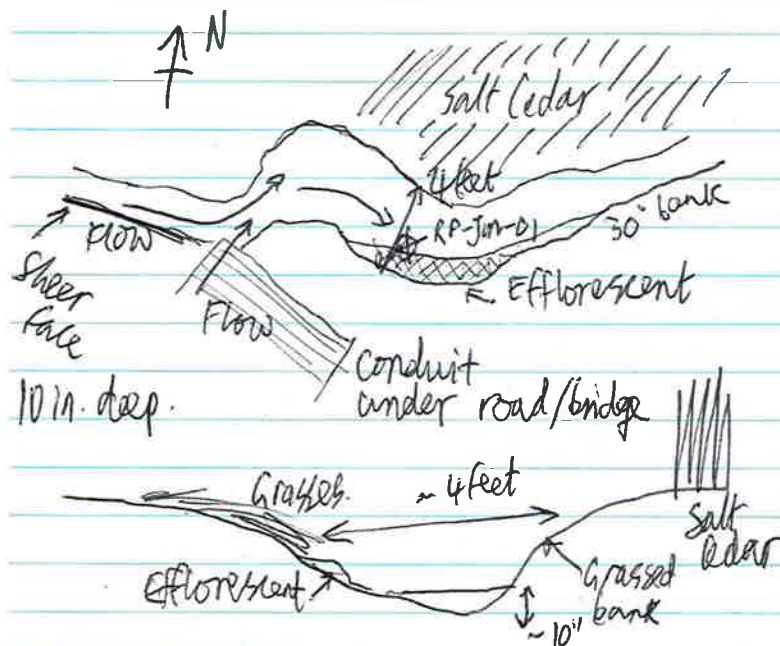 N
Salt Cedar
4 feet
RP-Jun-01
30° bank
Flow
Sheer
Face
← Efflorescent
Flow
Conduit
under road/bridge
10 in. deep.
Grasses.
~ 4 feet
Salt
Cedar
Efflorescent
Grassed
bank
~10"